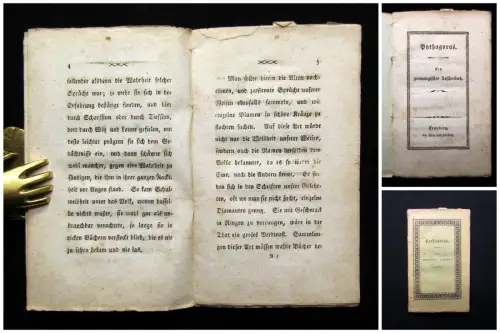 4
sellender alsdenn die Wahrheit solcher
Sprüche war; je mehr sie sich in der
Erfahrung bestätigt fanden, und hier
durch Scharfsinn oder durch Tiefsinn,
dort durch Witz und Laune gefielen, um
desto leichter prägten sie sich dem Ge-
dächtniße ein, und dann schämte sich
wohl mancher, gegen eine Wahrheit zu
sündigen, die ihm in ihrer ganzen Nackt-
heit vor Augen stand. So kam Schul-
weisheit unter das Volk, wovon dassel-
be nichts wußte, so wohl gar als un-
brauchbar verachtete, so lange sie in
dicken Büchern versteckt blieb, die es nie
zu sehen bekam und nie las.
5
Man sollte hierin die Alten nach-
ahmen, und zerstreute Sprüche unserer
Weisen ebenfalls sammeln, und wie
einzelne Blumen in schöne Kränze zu
flechten suchen. Auf diese Art würde
nicht nur die Weisheit unserer Weisen,
sondern auch die Namen derselben dem
Volke bekannter, da es so selten die
Eine, noch die Andern kennt. Es fin-
den sich in den Schriften unserer Gelehr-
ten, oft wo man sie nicht sucht, einzelne
Diamanten genug. Sie mit Geschmack
in Ringen zu vereinigen, wäre in der
That ein großes Verdienst. Sammlun-
gen dieser Art müssen wahre Bücher des
Pythagoras.
Ein